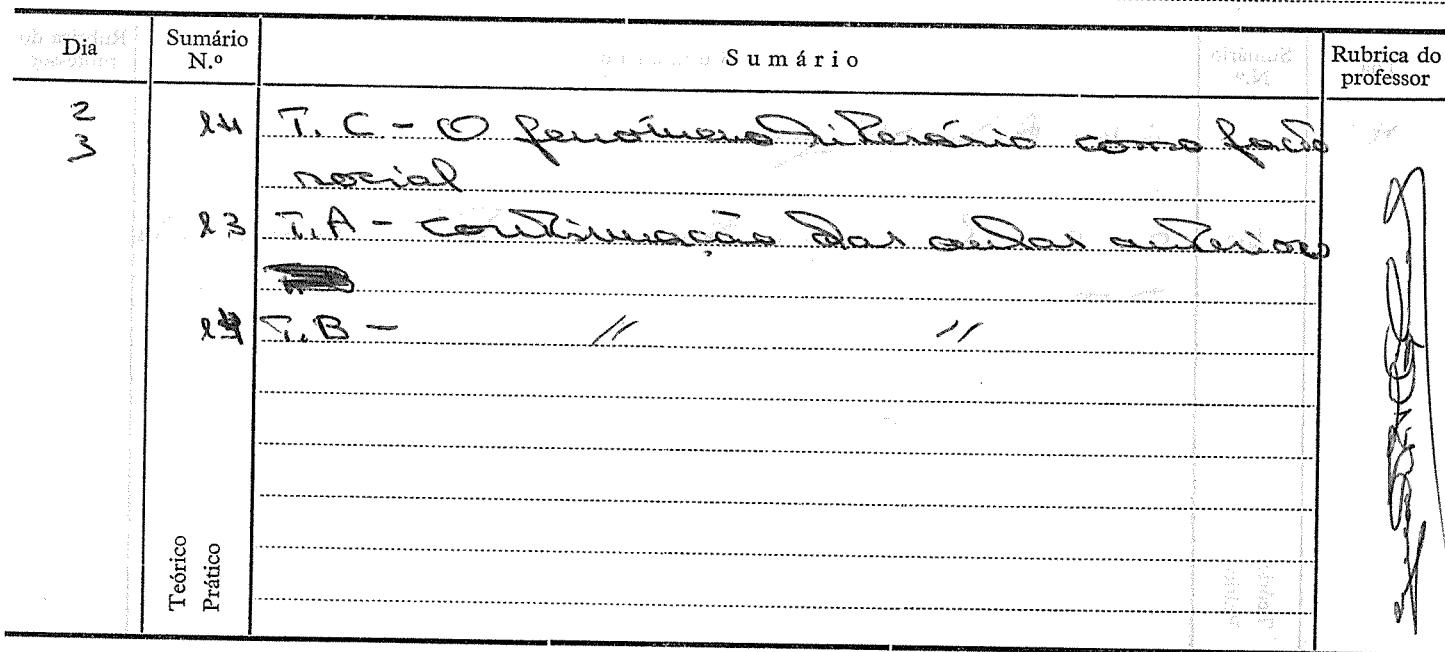 Dia Sumário N.º Sumário Rubrica do professor
2 24 T. C - O fenómeno literário como facto
3 social
23 T. A - Continuação das aulas anteriores
T. B - " "
Teórico
Prático